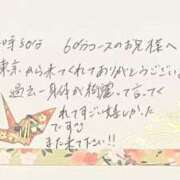 時30分 60分コースのお客様へ
東京から来てくれてありがとうござい
過去一身体が綺麗って言ってく
れてすごい嬉しかった
ですﾂ
また来て下さい!!